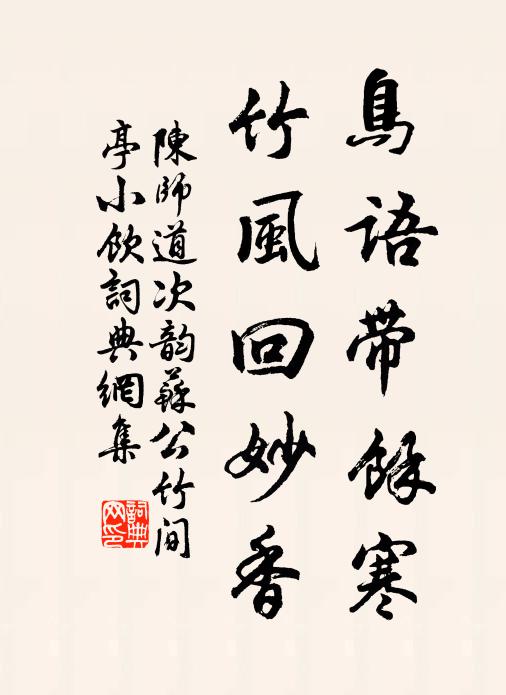 鳥語帶餘寒
竹風回妙香
陳師道次韵蘇公竹间
亭小飲詞典網集
詞典
网印